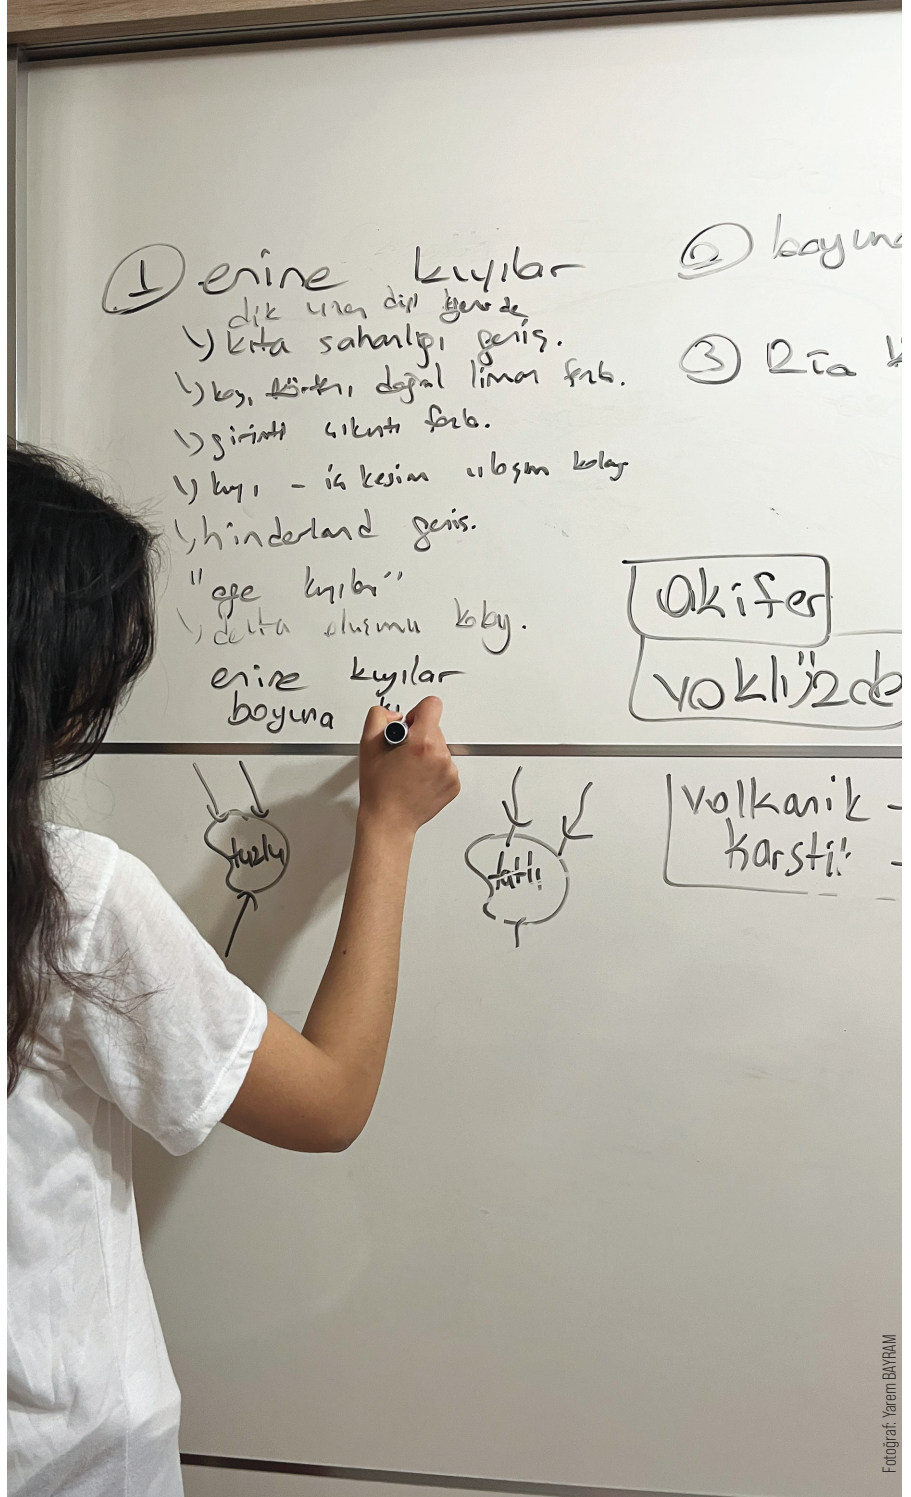 1 enine kıyılar
dik uzan
kıta sahanlığı geniş.
koy, doğal liman fazla.
girinti çıkıntı fazla.
kıyı - iç kesim ulaşım kolay
hinderland geniş.
"ege kıyıları"
delta oluşumu kolay.
enine kıyılar
boyuna kı
2 boyuna
3 Ria k
akifer
voklüzde
tuzlu
tatlı
volkanik -
karstik -
Fotoğraf: Yarem BAYRAM